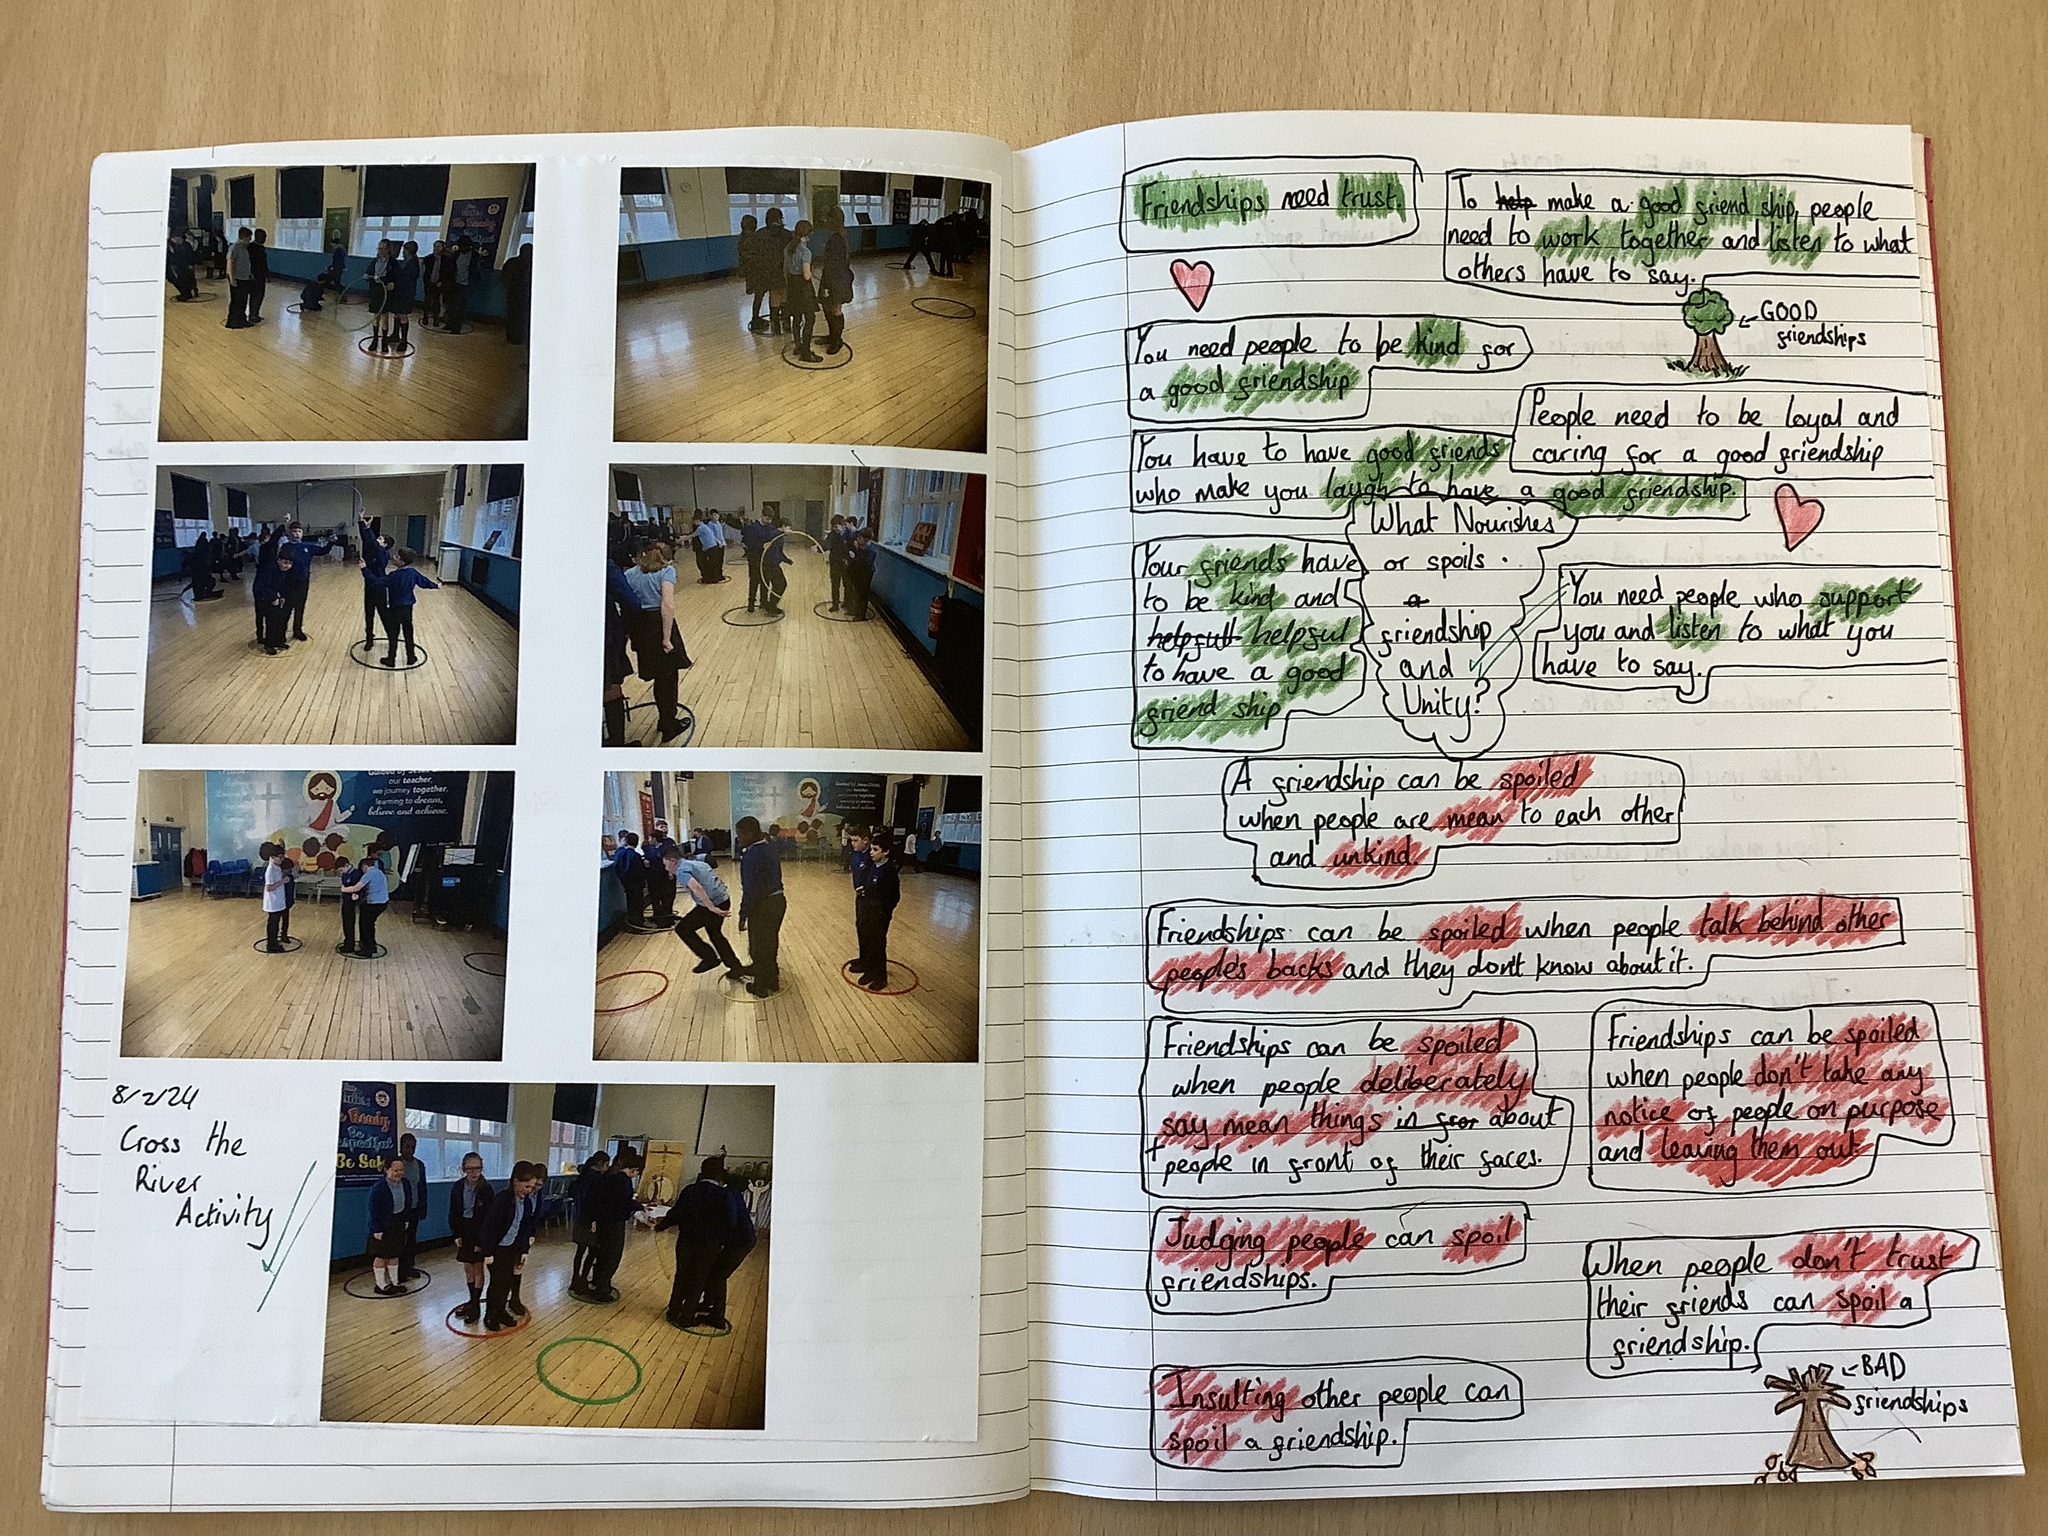 Guided by Jesus
our teacher,
we journey together,
learning to dream,
believe and achieve.
Be Ready
Be Safe
8/2/24
Cross the
River
Activity
Friendships need trust.
To help make a good friend ship, people
need to work together and listen to what
others have to say.
GOOD
friendships
You need people to be kind for
a good friendship
People need to be loyal and
caring for a good friendship
You have to have good friends
who make you laugh to have a good friendship.
What Nourishes
or spoils
a
friendship
and
Unity?
Your friends have
to be kind and
helpfull helpful
to have a good
friend ship
You need people who support
you and listen to what you
have to say.
A friendship can be spoiled
when people are mean to each other
and unkind.
Friendships can be spoiled when people talk behind other
people's backs and they don't know about it.
Friendships can be spoiled
when people deliberately
say mean things in fror about
people in front of their faces.
Friendships can be spoiled
when people don't take any
notice of people on purpose
and leaving them out.
Judging people can spoil
friendships.
When people don't trust
their friends can spoil a
friendship.
Insulting other people can
spoil a friendship.
BAD
friendships